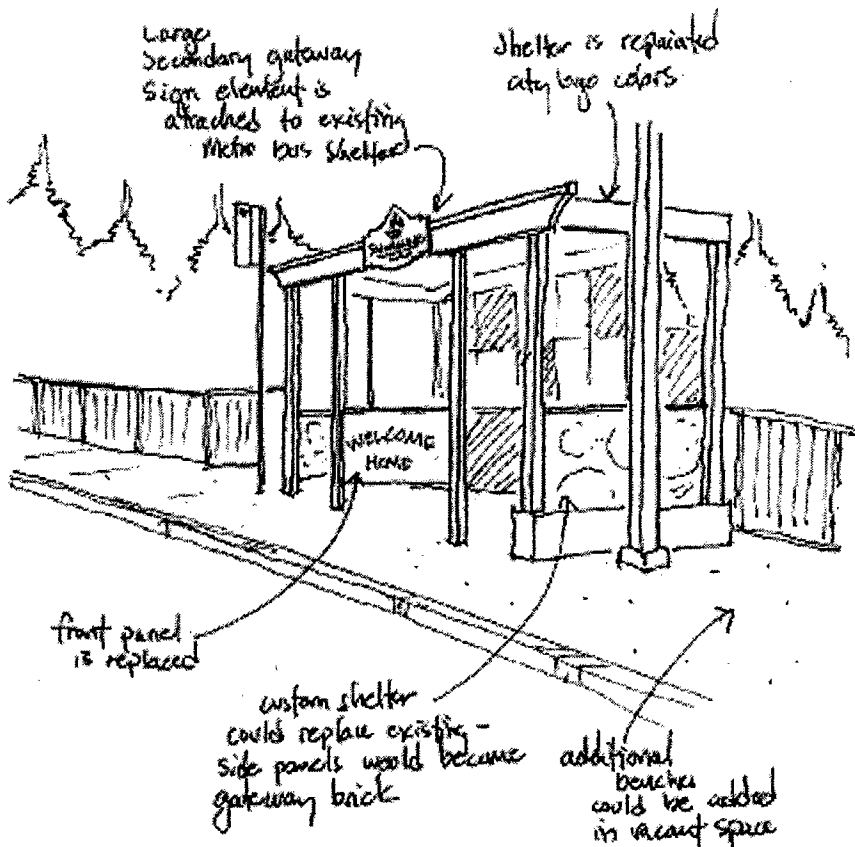 Large
Secondary gateway
Sign element is
attached to existing
Metro bus shelter
Shelter is repainted
city logo colors
WELCOME
HOME
front panel
is replaced
custom shelter
could replace existing -
side panels would become
gateway brick
additional
benches
could be added
in vacant space